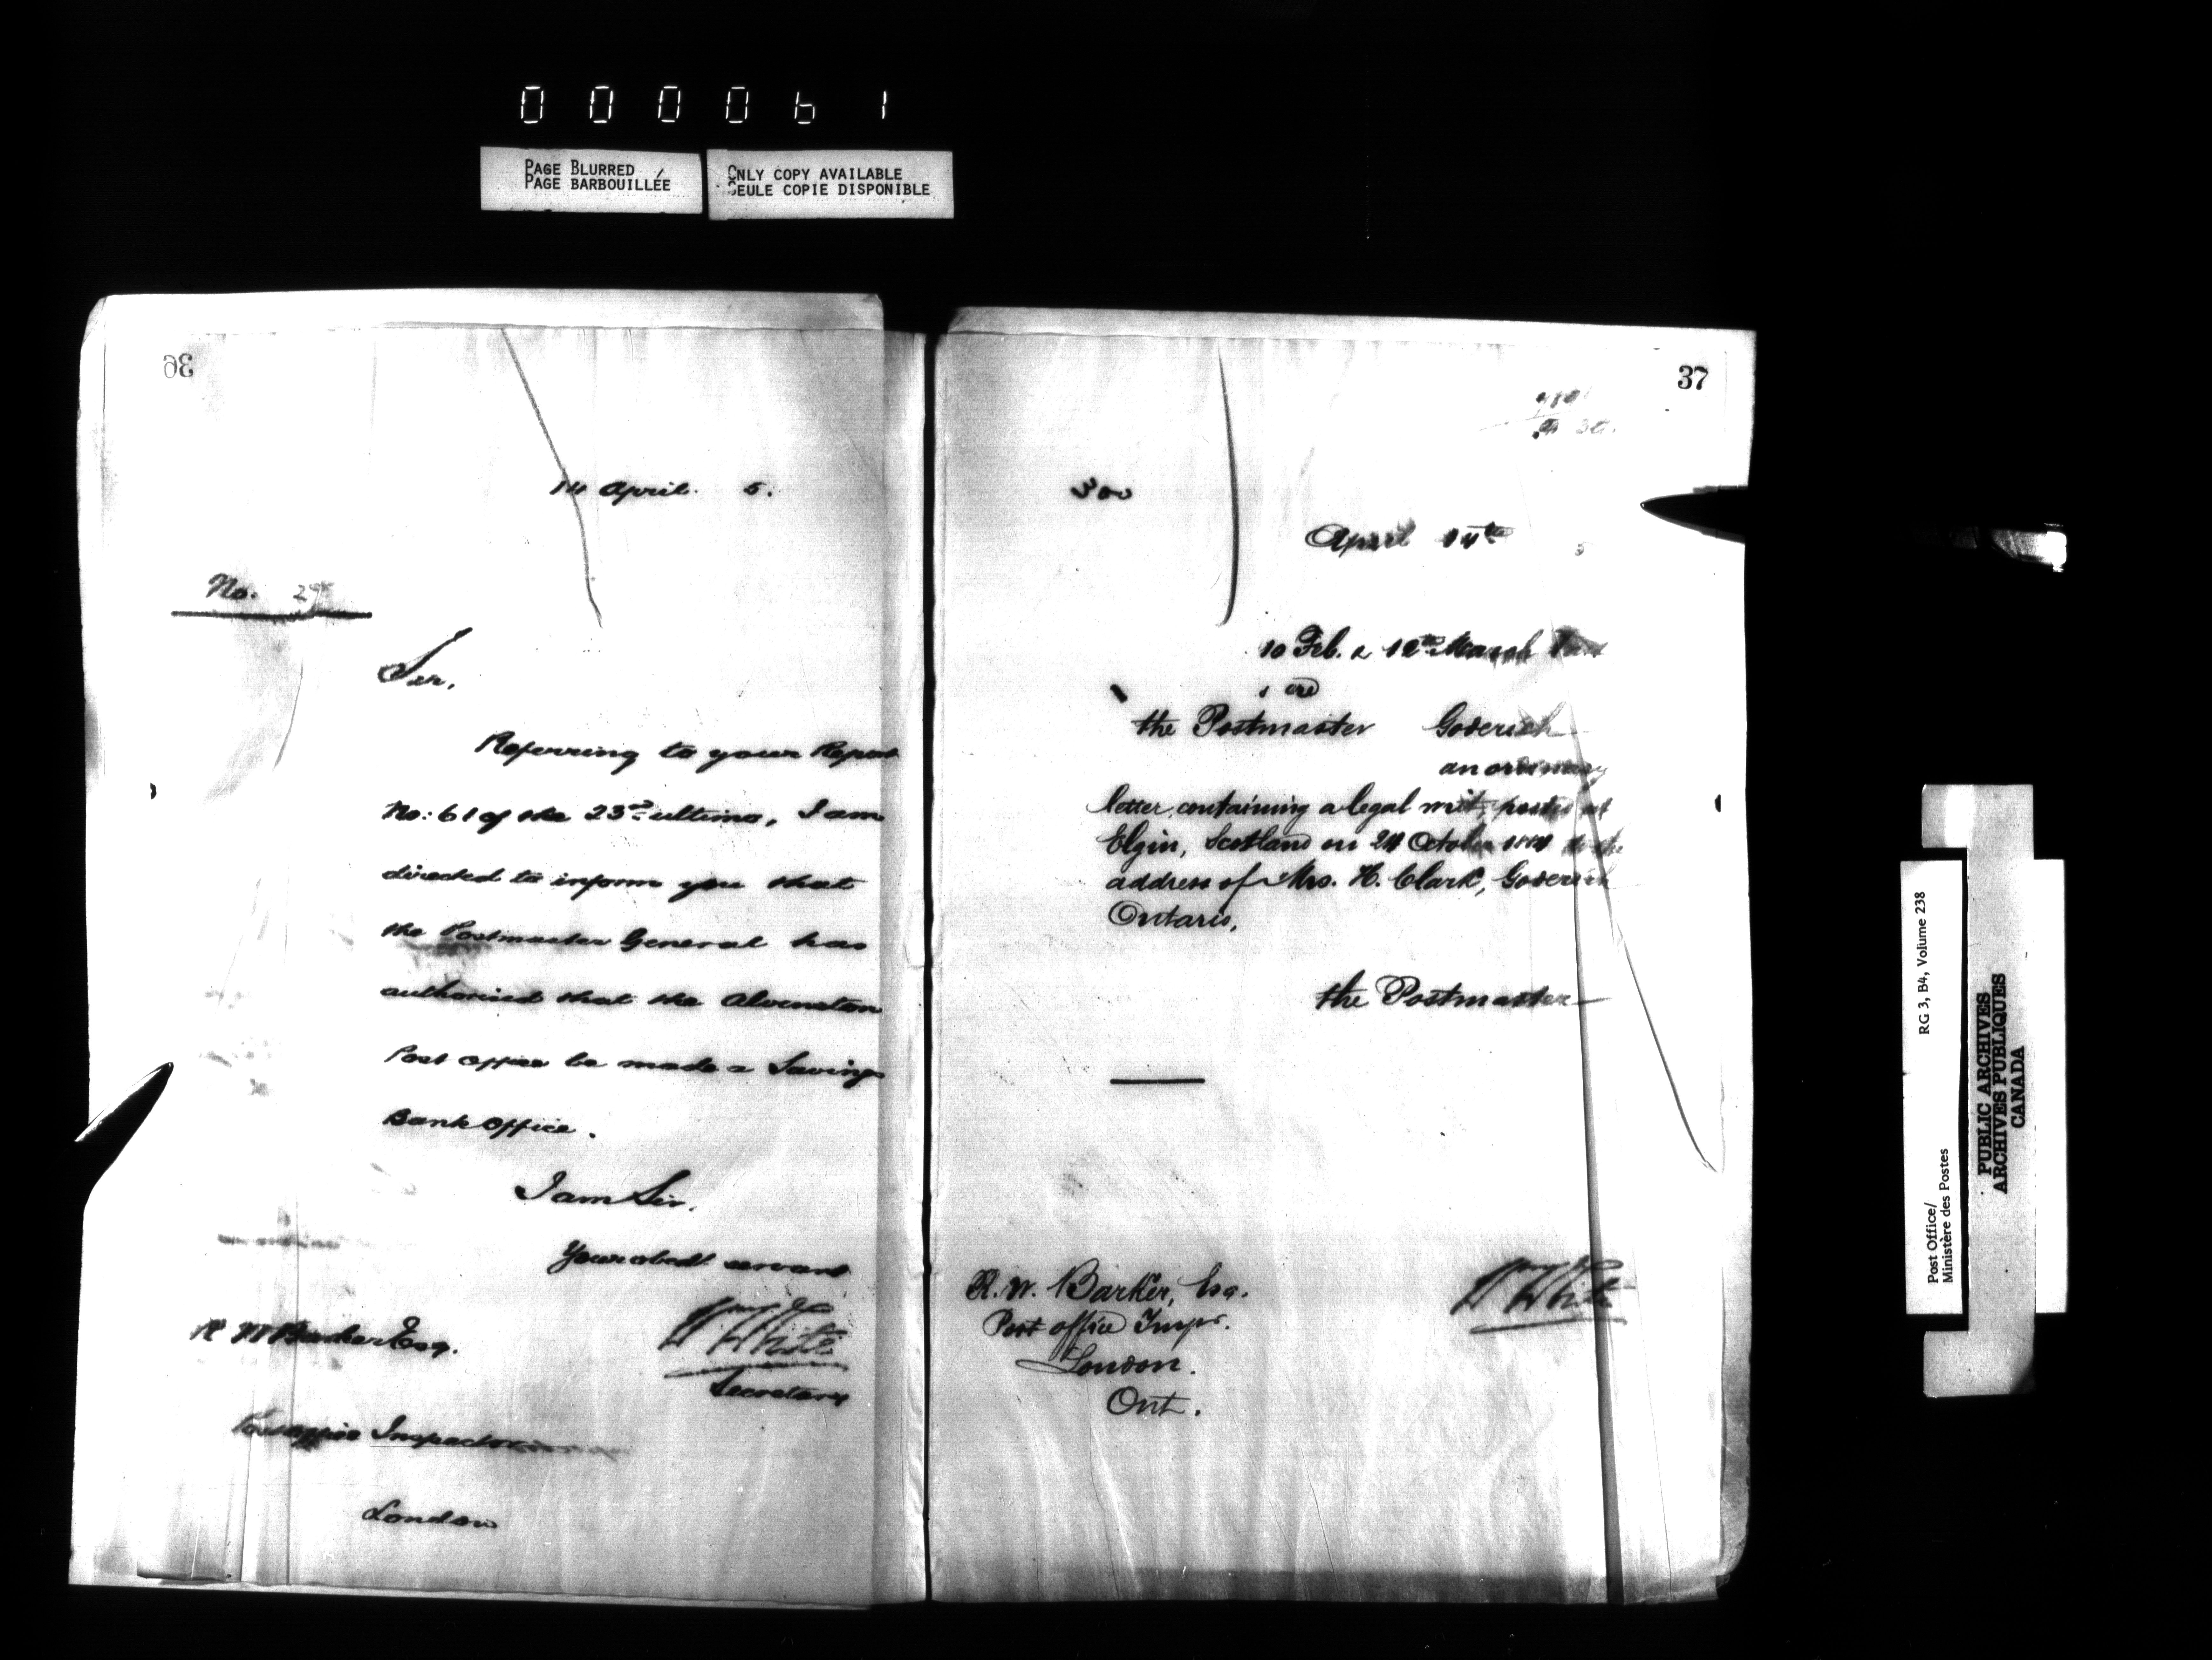 000061
PAGE BLURRED
PAGE BARBOUILLÉE
ONLY COPY AVAILABLE
SEULE COPIE DISPONIBLE
36
14 April 5.
No. 25
Sir,
Referring to your Report
No: 61 of the 23rd ultimo, I am
directed to inform you that
the Postmaster General has
authorised that the Alvinston
Post office be made a Savings
Bank Office.
I am Sir,
Your obedt servant
WWhite
Secretary
R W Barker Esq.
Post office Inspector
London
37
300
April 14th 5
10 Feb. & 12th March last
the Postmaster Goderich
an ordinary
letter, containing a legal writ, posted at
Elgin, Scotland on 24 October 1884 to the
address of Mrs. H. Clark, Goderich
Ontario.
the Postmaster
R. W. Barker, Esq.
Post office Inspr.
London.
Ont.
WWhite
Post Office/
Ministère des Postes
RG 3, B4, Volume 238
PUBLIC ARCHIVES
ARCHIVES PUBLIQUES
CANADA